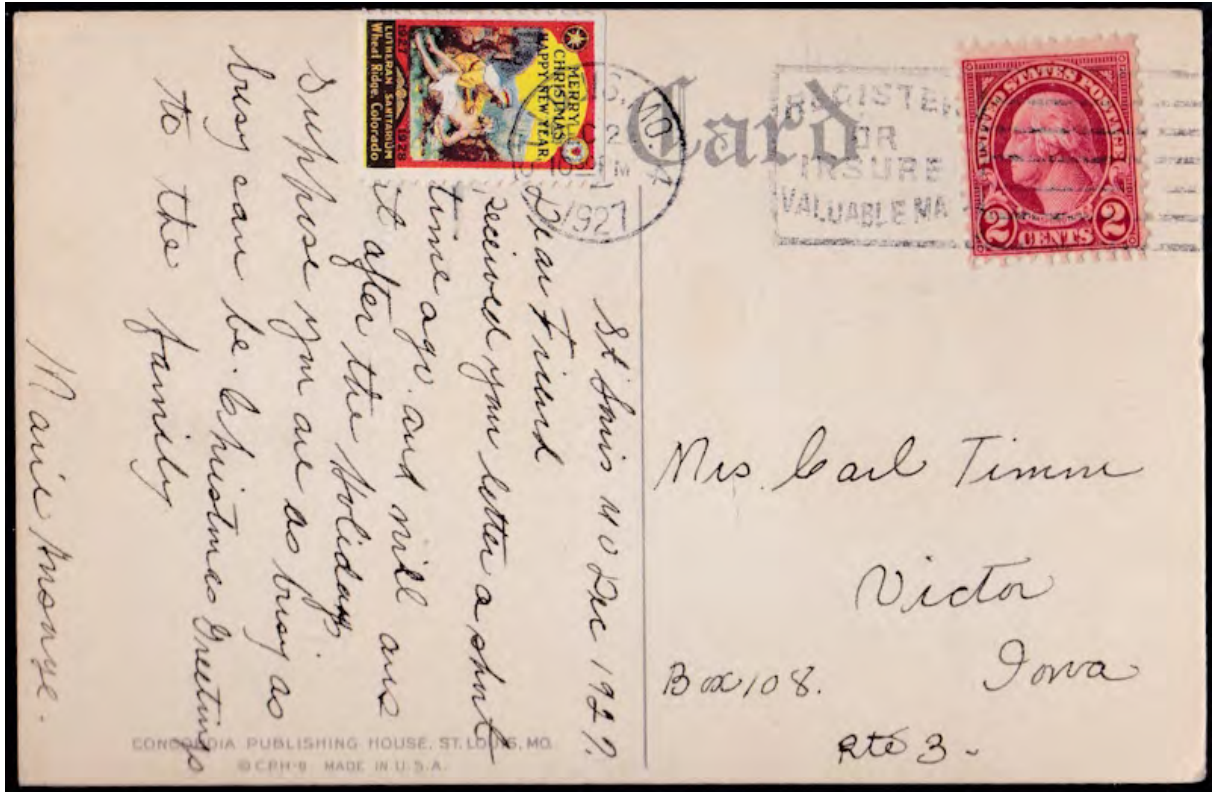 MERRY
CHRISTMAS
HAPPY NEW YEAR
1927 1928
LUTHERAN SANITARIUM
Wheat Ridge, Colorado
MO.
1927
Card
REGISTER
OR
INSURE
VALUABLE MA
UNITED STATES POSTAGE
2 CENTS 2
St Louis MO Dec 1927.
Dear Friend
received your letter a short
time ago. and will ans
it after the holidays
Suppose you are as busy as
busy can be. Christmas Greetings
to the family
Marie
Mrs. Carl Timm
Victor
Iowa
Box 108.
Rte 3 -
CONCORDIA PUBLISHING HOUSE, ST. LOUIS, MO.
© CPH-8 MADE IN U.S.A.